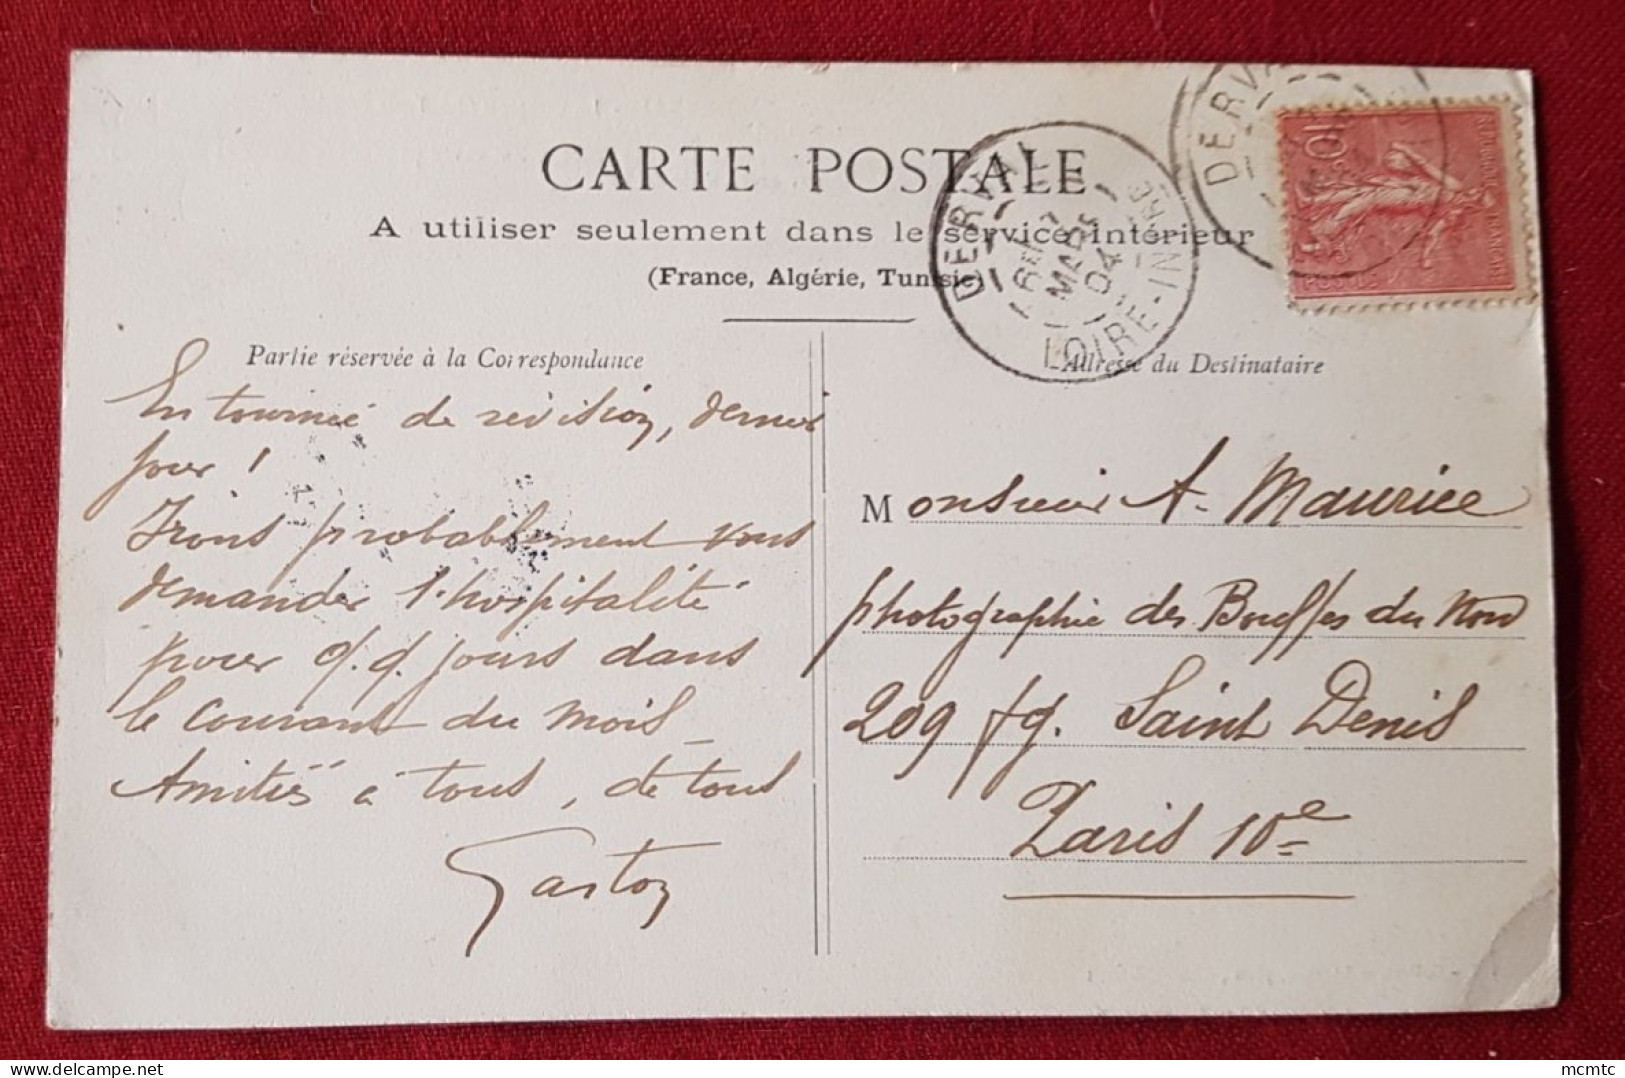 CARTE POSTALE
A utiliser seulement dans le service intérieur
(France, Algérie, Tunisie)
Partie réservée à la Correspondance
En tournée de révision, dernier
jour !
Irons probablement vous
demander l'hospitalité
pour q.q. jours dans
le courant du mois_
Amitiés à tous, de tous
Gaston
Adresse du Destinataire
Monsieur A. Maurice
photographie des Bouffes du Nord
209 fg. Saint Denis
Paris 10e
DERVAL
MARS
04
LOIRE-INFRE
DERVA
10c
POSTES
mcmtc